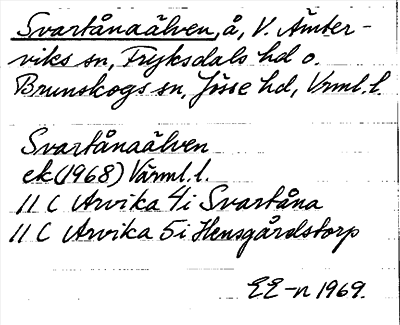 Svartånaälven, å, V. Ämter-
viks sn, Fryksdals hd o.
Brunskogs sn, Jösse hd, Vrml. l.
Svartånaälven
ek (1968) Värml. l.
11 C Arvika 4i Svartåna
11 C Arvika 5i Hensgårdstorp
EE-n 1969.